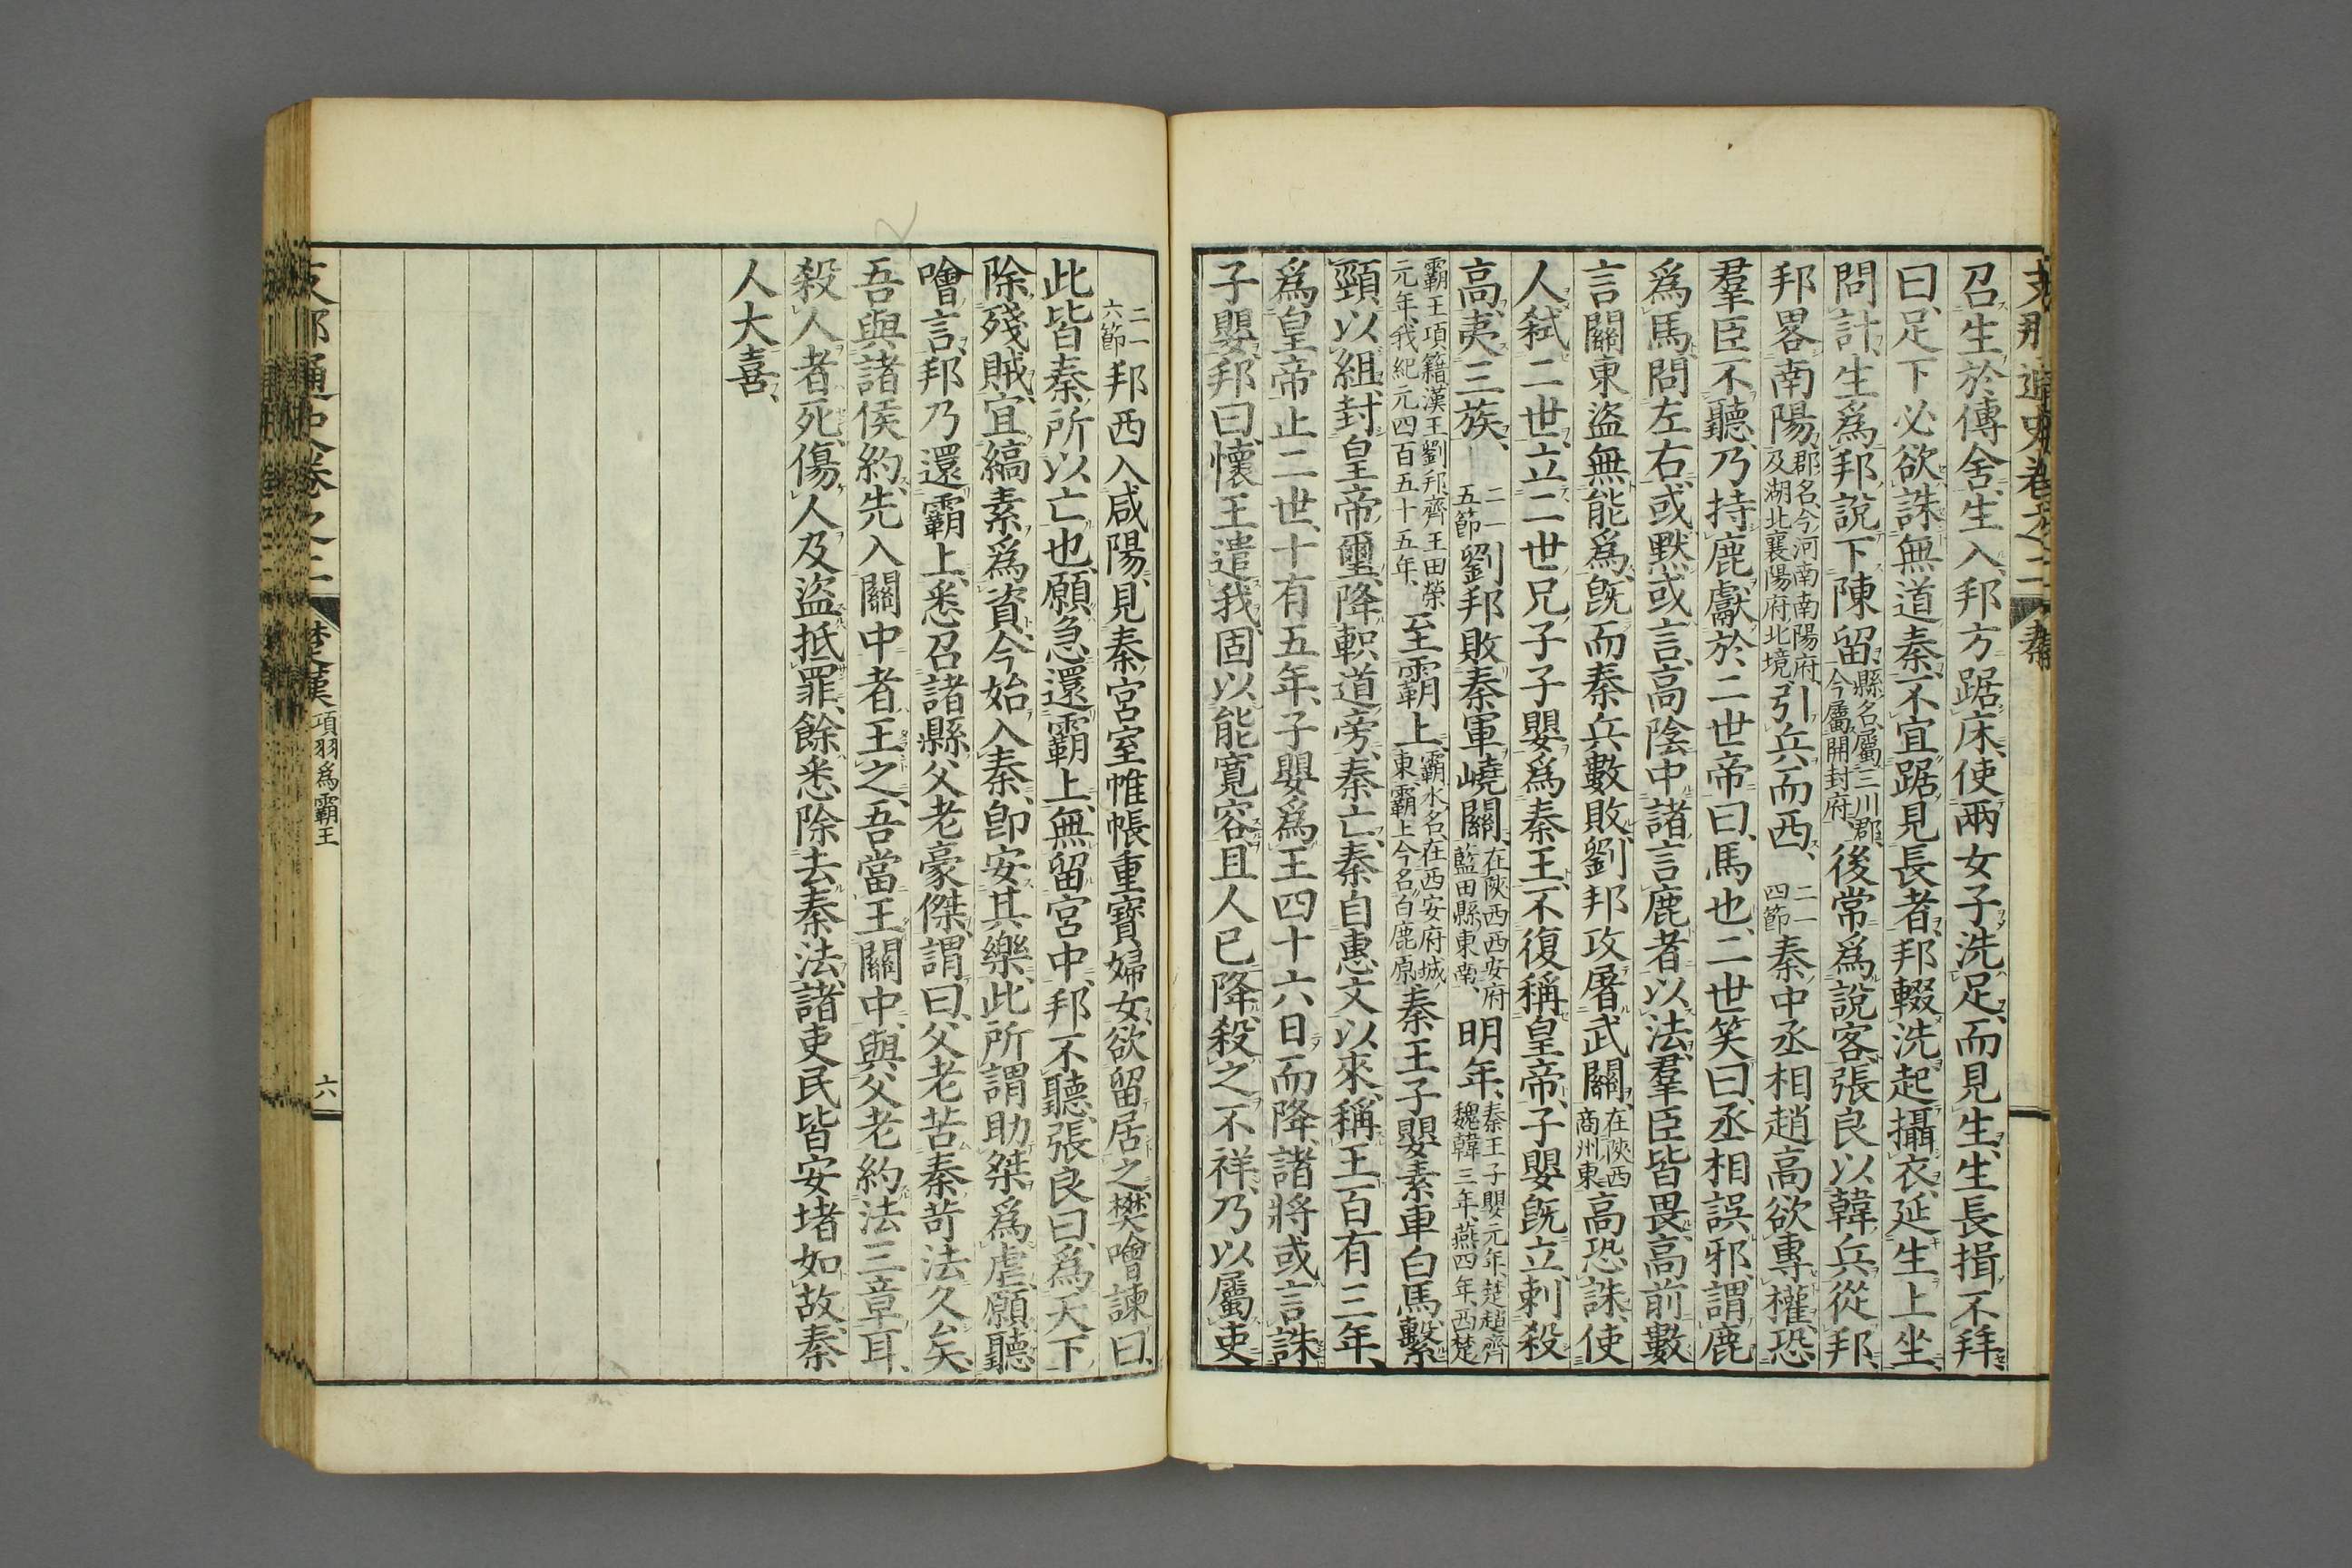 支那通史卷之二 秦
召生於傳舍、生入、邦方踞床、使兩女子洗足、而見生、生長揖不拜、
曰、足下必欲誅無道秦、不宜踞見長者、邦輟洗起攝衣、延生上坐、
問計、生爲邦說下陳留、縣名、屬三川郡、今屬開封府、後常爲說客、張良以韓兵從邦、
邦畧南陽、郡名、今河南南陽府、及湖北襄陽府北境、引兵而西、二一四節秦中丞相趙高欲專權、恐
羣臣不聽、乃持鹿獻於二世帝曰、馬也、二世笑曰、丞相誤邪、謂鹿
爲馬、問左右、或默或言、高陰中諸言鹿者以法、羣臣皆畏高、前數
言關東盜無能爲、旣而秦兵數敗、劉邦攻屠武關、在陝西商州東高恐誅、使
人弒二世、立二世兄子子嬰爲秦王、不復稱皇帝、子嬰旣立、刺殺
高、夷三族、二一五節劉邦敗秦軍嶢關、在陝西西安府藍田縣東南、明年、秦王子嬰元年、楚趙齊魏韓三年、燕四年、西楚
霸王項籍漢王劉邦齊王田榮元年、我紀元四百五十五年、至霸上、霸水名、在西安府城東、霸上今名白鹿原、秦王子嬰素車白馬、繫
頸以組、封皇帝璽、降軹道旁、秦亡、秦自惠文以來、稱王百有三年、
爲皇帝止二世、十有五年、子嬰爲王四十六日而降、諸將或言誅
子嬰、邦曰、懷王遣我、固以能寬容、且人已降、殺之不祥、乃以屬吏
二一六節邦西入咸陽、見秦宮室帷帳重寶婦女、欲留居之、樊噲諫曰、
此皆秦所以亡也、願急還霸上、無留宮中、邦不聽、張良曰、爲天下
除殘賊、宜縞素爲資、今始入秦、卽安其樂、此所謂助桀爲虐、願聽
噲言、邦乃還霸上、悉召諸縣父老豪傑、謂曰、父老苦秦苛法久矣、
吾與諸侯約、先入關中者王之、吾當王關中、與父老約、法三章耳、
殺人者死、傷人及盜抵罪、餘悉除去秦法、諸吏民皆安堵如故、秦
人大喜、
支那通史卷之二 楚漢 項羽爲霸王 六